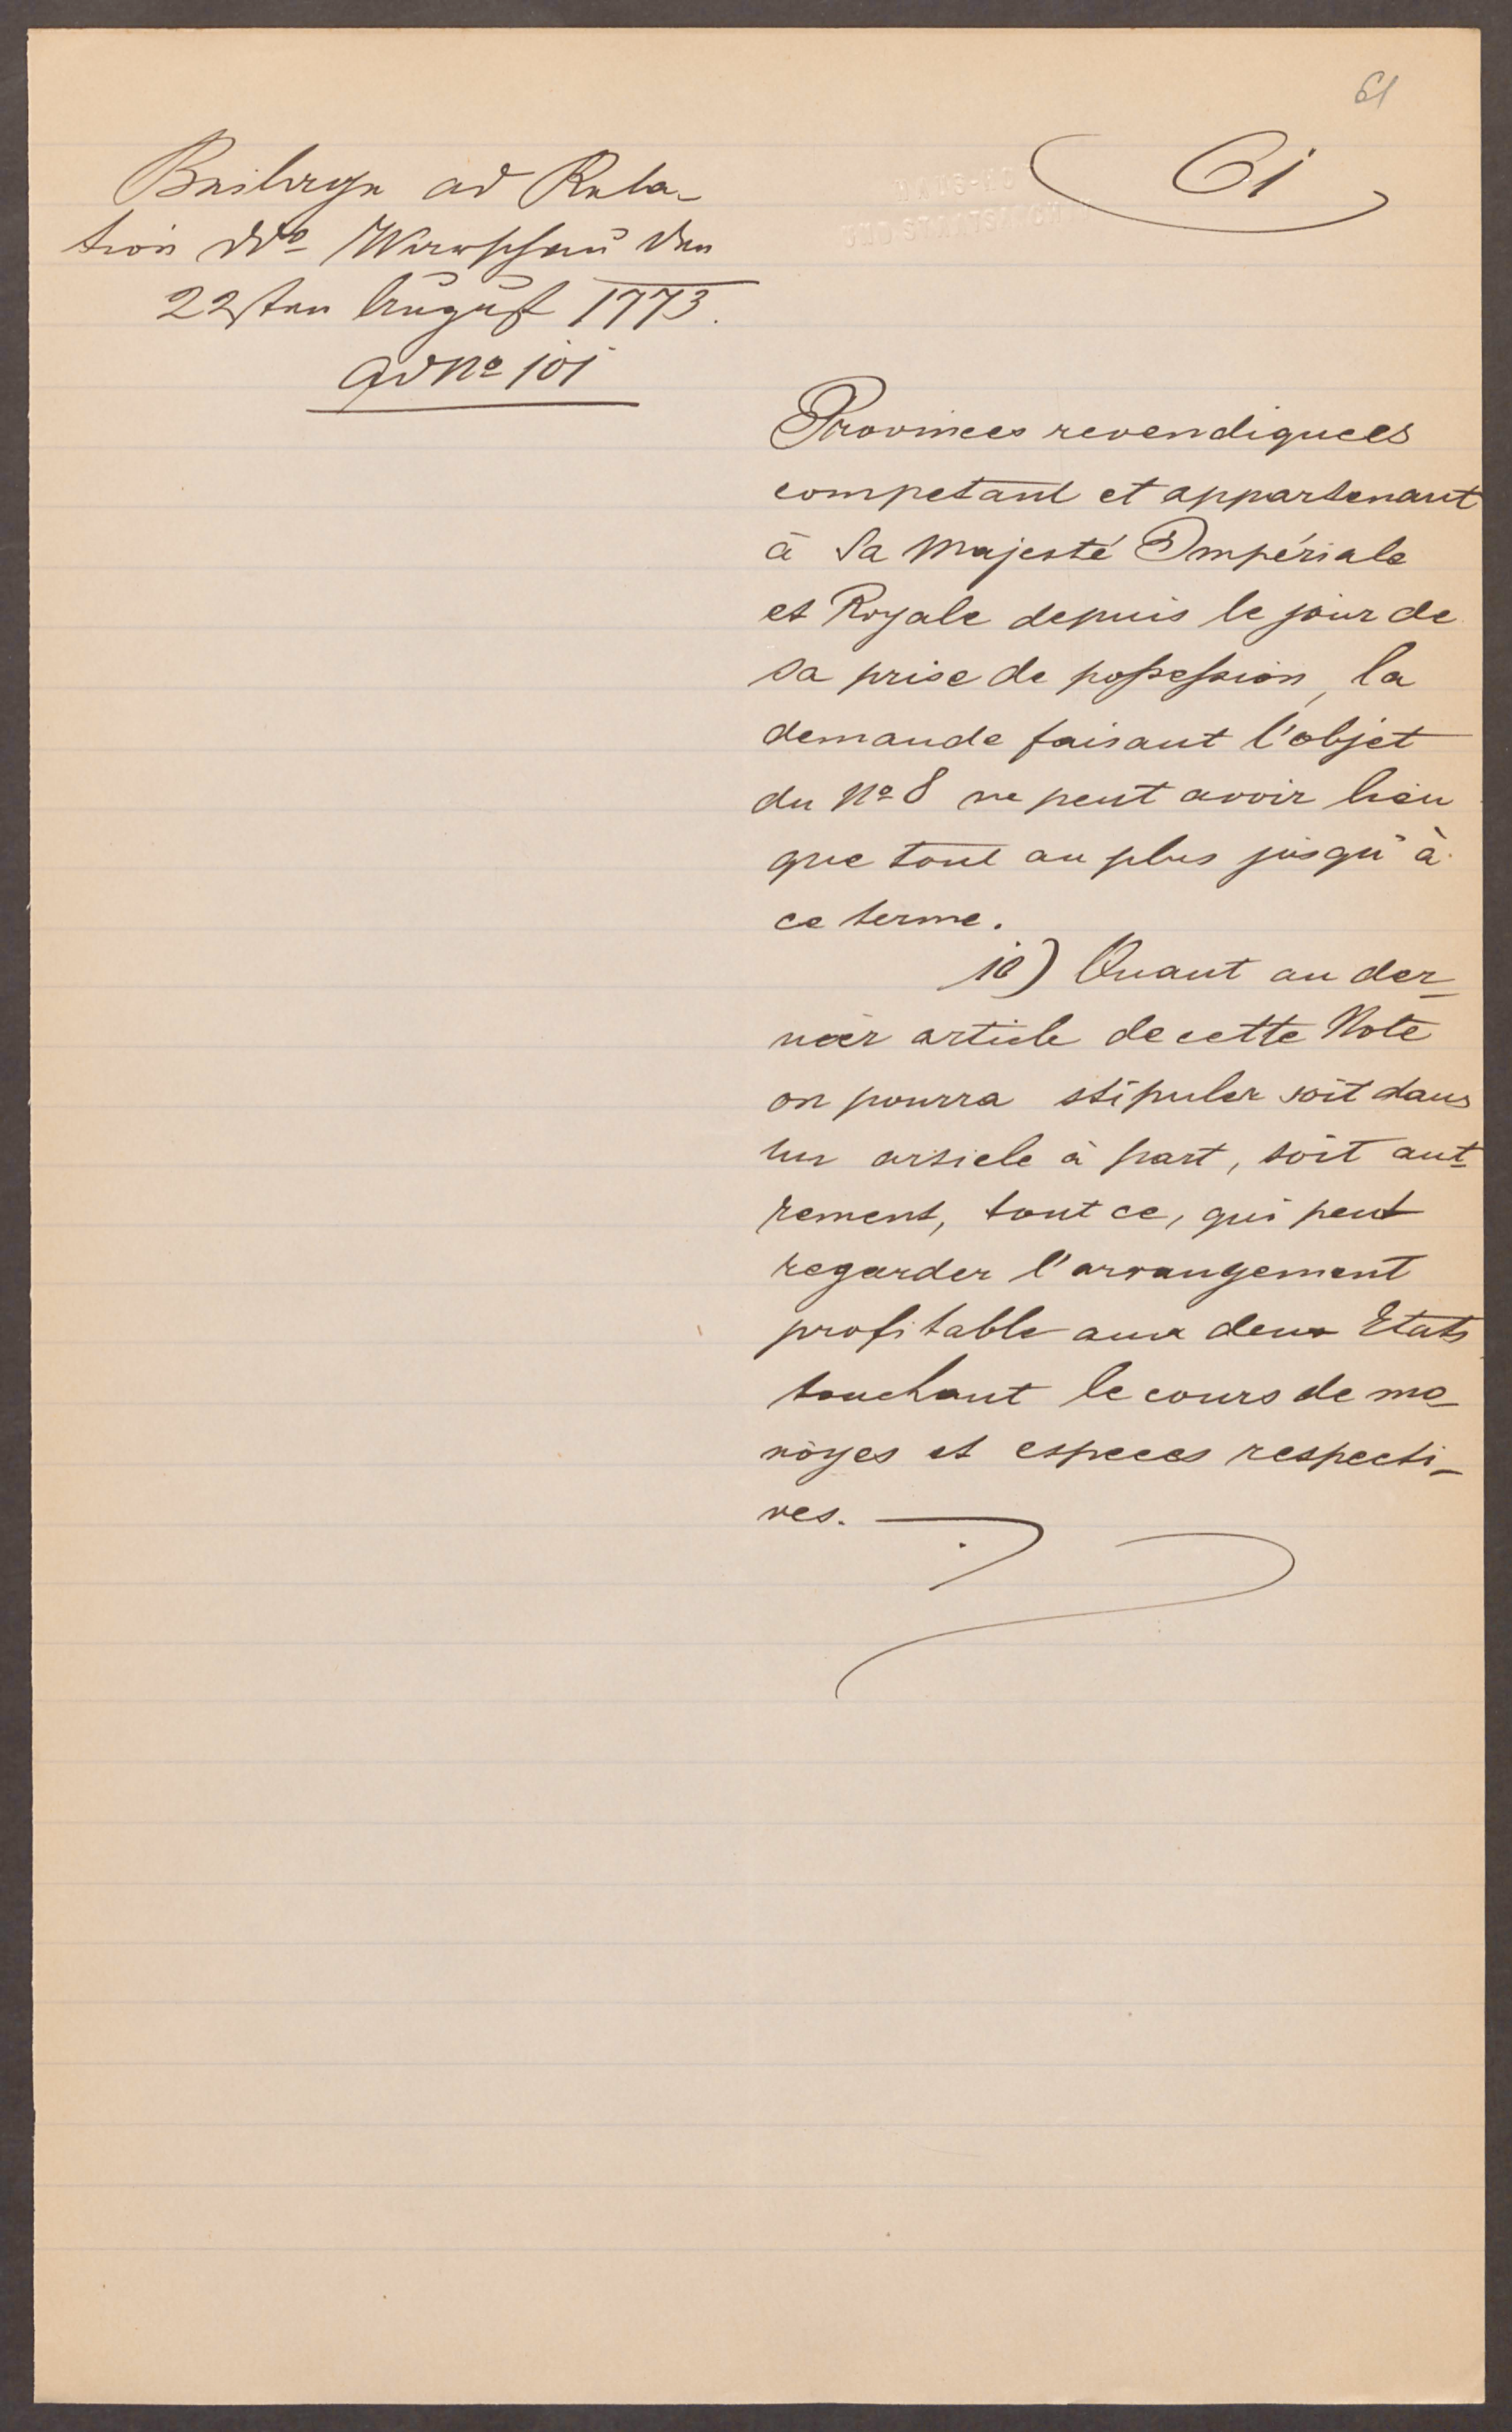 61
61
Beilage ad Rela-
tion Dto Warschau den
22sten August 1773.
ad No 101
HAUS-HO
UND STAATSARCHIV
Provinces revendiquees
competant et appartenant
à Sa Majesté Impériale
et Royale depuis le jour de
sa prise de possession, la
demande faisant l'objet
du No 8 ne peut avoir lieu
que tout au plus jusqu'à
ce terme.
10) Quant au der-
nier article de cette Note
on pourra stipuler soit dans
un article à part, soit aut-
rement, tout ce, qui peut
regarder l'arrangement
profitable aux deux Etats
touchant le cours de mo-
noyes et especes respecti-
ves.